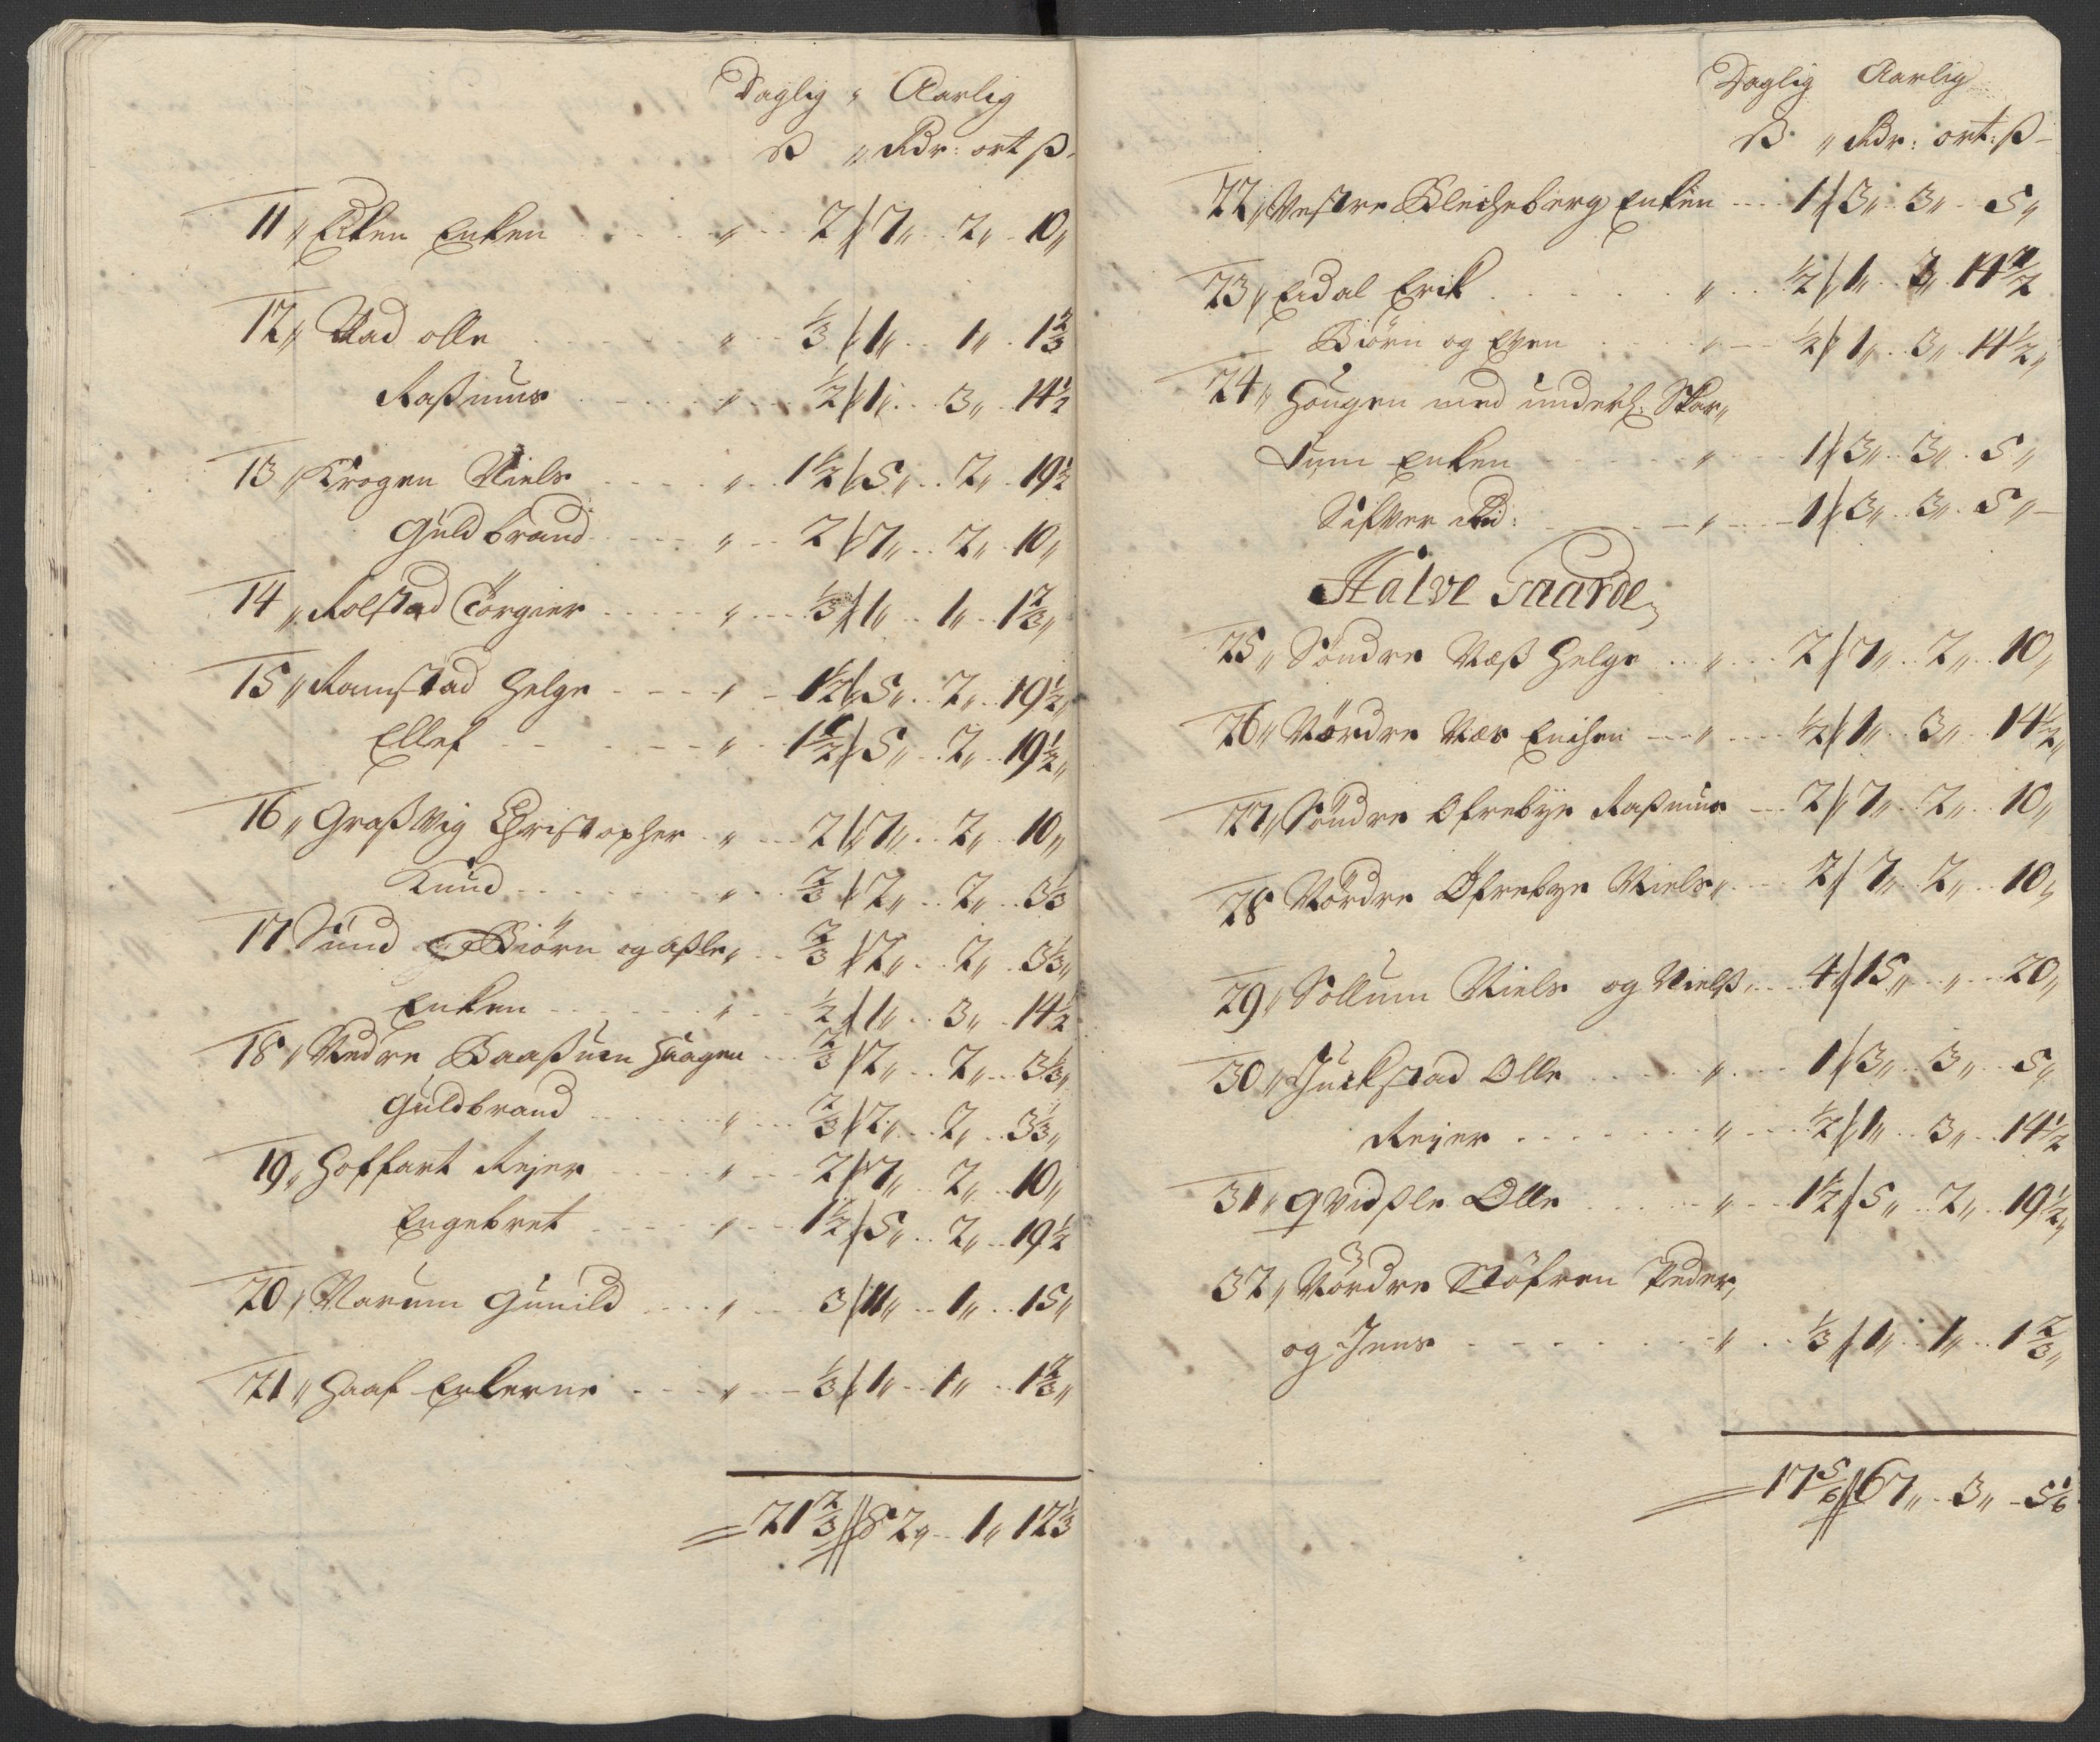 Daglig „ Aarlig
ß „ Rdr: ort ß
11 „ Eiken Enken „ 2 // 7 „ 2 „ 10 „
12 „ Aad olle „ 1/3 // 1 „ 1 „ 1 2/3
Raßmus „ 1/2 // 1 „ 3 „ 14 1/2
13 „ Krogen Niels „ 1 1/2 // 5 „ 2 „ 19 1/2
Guldbrand „ 2 // 7 „ 2 „ 10 „
14 „ Rolstad Törgier „ 1/3 // 1 „ 1 „ 1 2/3 „
15 „ Ramstad Helge „ 1 1/2 // 5 „ 2 „ 19 1/2 „
Ellef „ 1 1/2 // 5 „ 2 „ 19 1/2 „
16 „ Graßvig Christopher „ 2 // 7 „ 2 „ 10 „
Knud „ 2/3 // 2 „ 2 „ 3 1/3
17 Sund Biörn og aßle „ 2/3 // 2 „ 2 „ 3 1/3 „
Enken „ 1/2 // 1 „ 3 „ 14 1/2
18 „ Nedre Baaßuen Haagen 2/3 // 2 „ 2 „ 3 1/3 „
Guldbrand „ 2/3 // 2 „ 2 „ 3 1/3 „
19 „ Hoffart Rejer „ 2 // 7 „ 2 „ 10 „
Engebret „ 1 1/2 // 5 „ 2 „ 19 1/2
20 „ Narum Gunild „ 3 // 11 „ 1 „ 15 „
21 „ Haaf Enkerne „ 1/3 // 1 „ 1 „ 1 2/3 „
21 2/3 // 82 „ 1 „ 12 1/3
Daglig Aarlig
ß „ Rdr: ort: ß
22 „ Vestre Bleicheberg Enken 1 // 3 „ 3 „ 5 „
23 „ Eidal Erik „ 1/2 // 1 „ 3 „ 14 1/2
Biörn og Even „ 1/2 // 1 „ 3 „ 14 1/2 „
24 „ Hougen med underl: Skar„
dum Enken „ 1 // 3 „ 3 „ 5 „
Sifver „ 1 // 3 „ 3 „ 5 „
Halve Gaarde
25 „ Söndre Næß Helge „ 2 // 7 „ 2 „ 10 „
26 „ Nördre Næs Enchen „ 1/2 // 1 „ 3 „ 14 1/2 „
27 „ Söndre Ofrebye Raßmus 2 // 7 „ 2 „ 10 „
28 Nördre Öfrebye Niels „ 2 // 7 „ 2 „ 10 „
29 „ Sollum Niels og Nielß „ 4 // 15 „ „ 20 „
30 „ Juelstad Olle „ 1 // 3 „ 3 „ 5 „
Rejer „ 1/2 // 1 „ 3 „ 14 1/2
31 „ qvidsle Olle „ 1 1/2 // 5 „ 2 „ 19 1/2 „
32 „ Nördre Stöfren Peder
og Jens „ 1/3 // 1 „ 1 „ 1 2/3 „
17 5/6 // 67 „ 3 „ 5 1/6